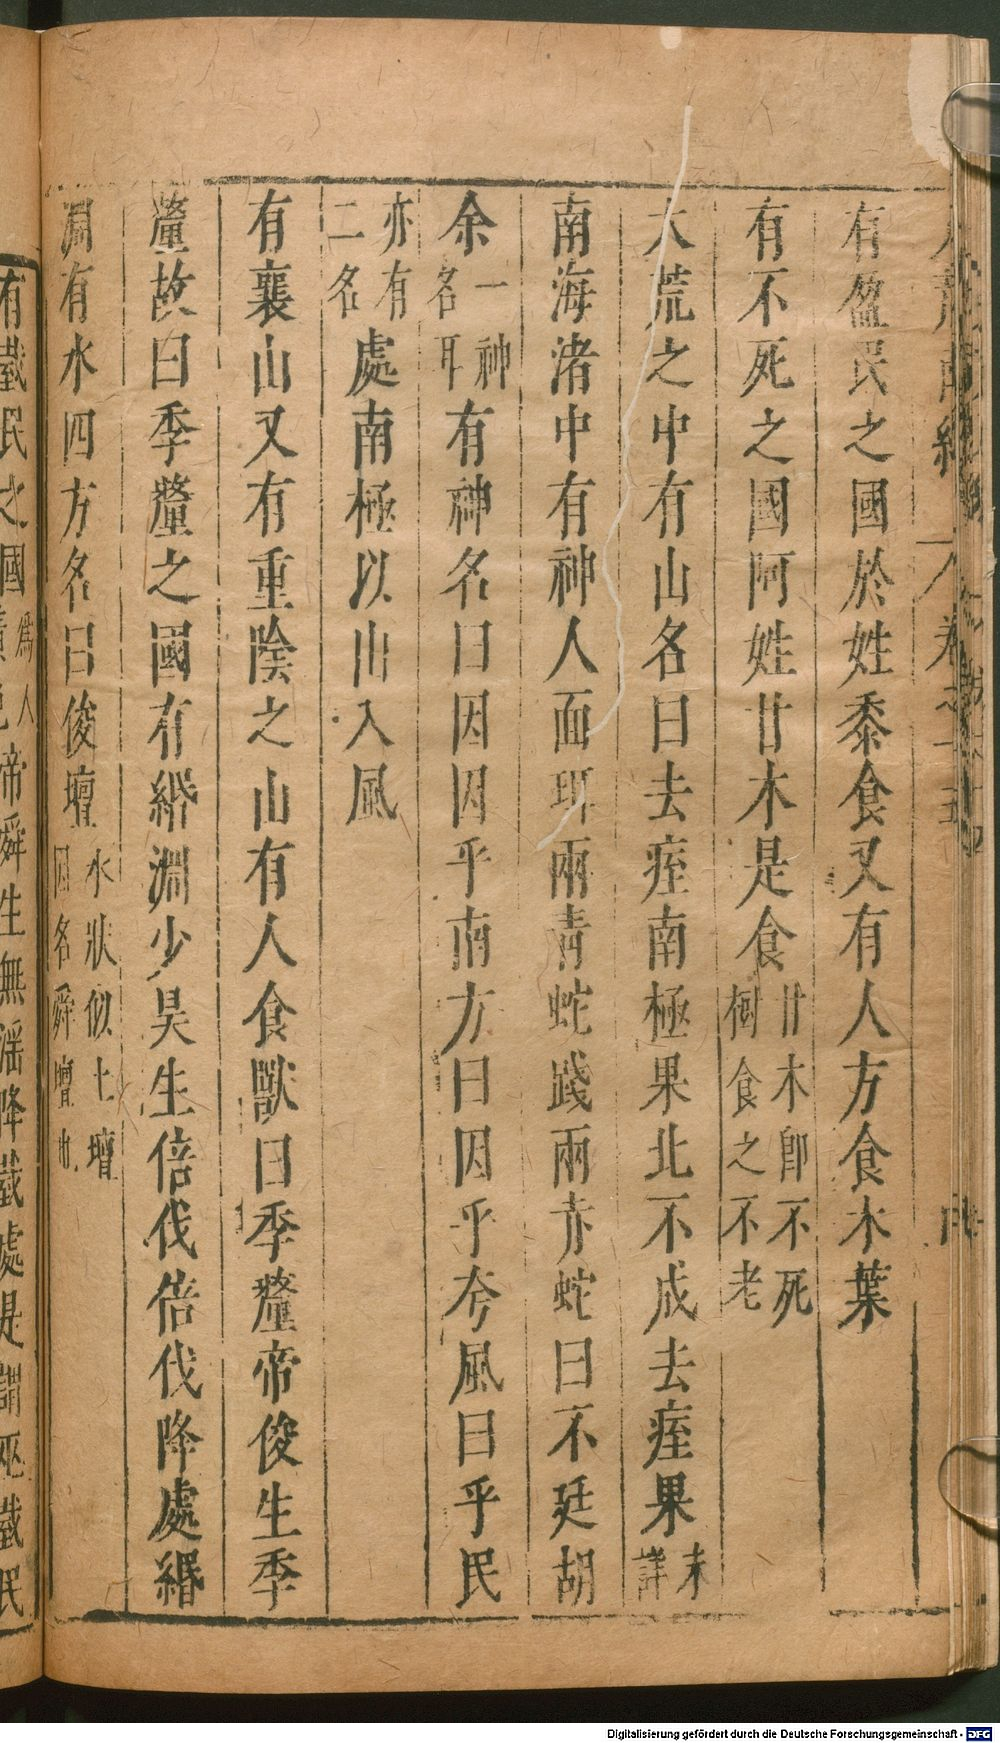 有盈民之國於姓黍食又有人方食木葉
有不死之國阿姓甘木是食甘木即不死樹食之不老
大荒之中有山名曰去痓南極果北不成去痓果未詳
南海渚中有神人面珥兩青蛇踐兩赤蛇曰不廷胡
余一神名耳有神名曰因因乎南方曰因乎夸風曰乎民
亦有二名處南極以出入風
有襄山又有重陰之山有人食獸曰季釐帝俊生季
釐故曰季釐之國有緡淵少昊生倍伐倍伐降處緡
淵有水四方名曰俊壇水狀似土壇因名舜壇也
有臷民之國為人黃色帝舜生無淫降臷處是謂巫臷民
Digitalisierung gefördert durch die Deutsche Forschungsgemeinschaft - DFG